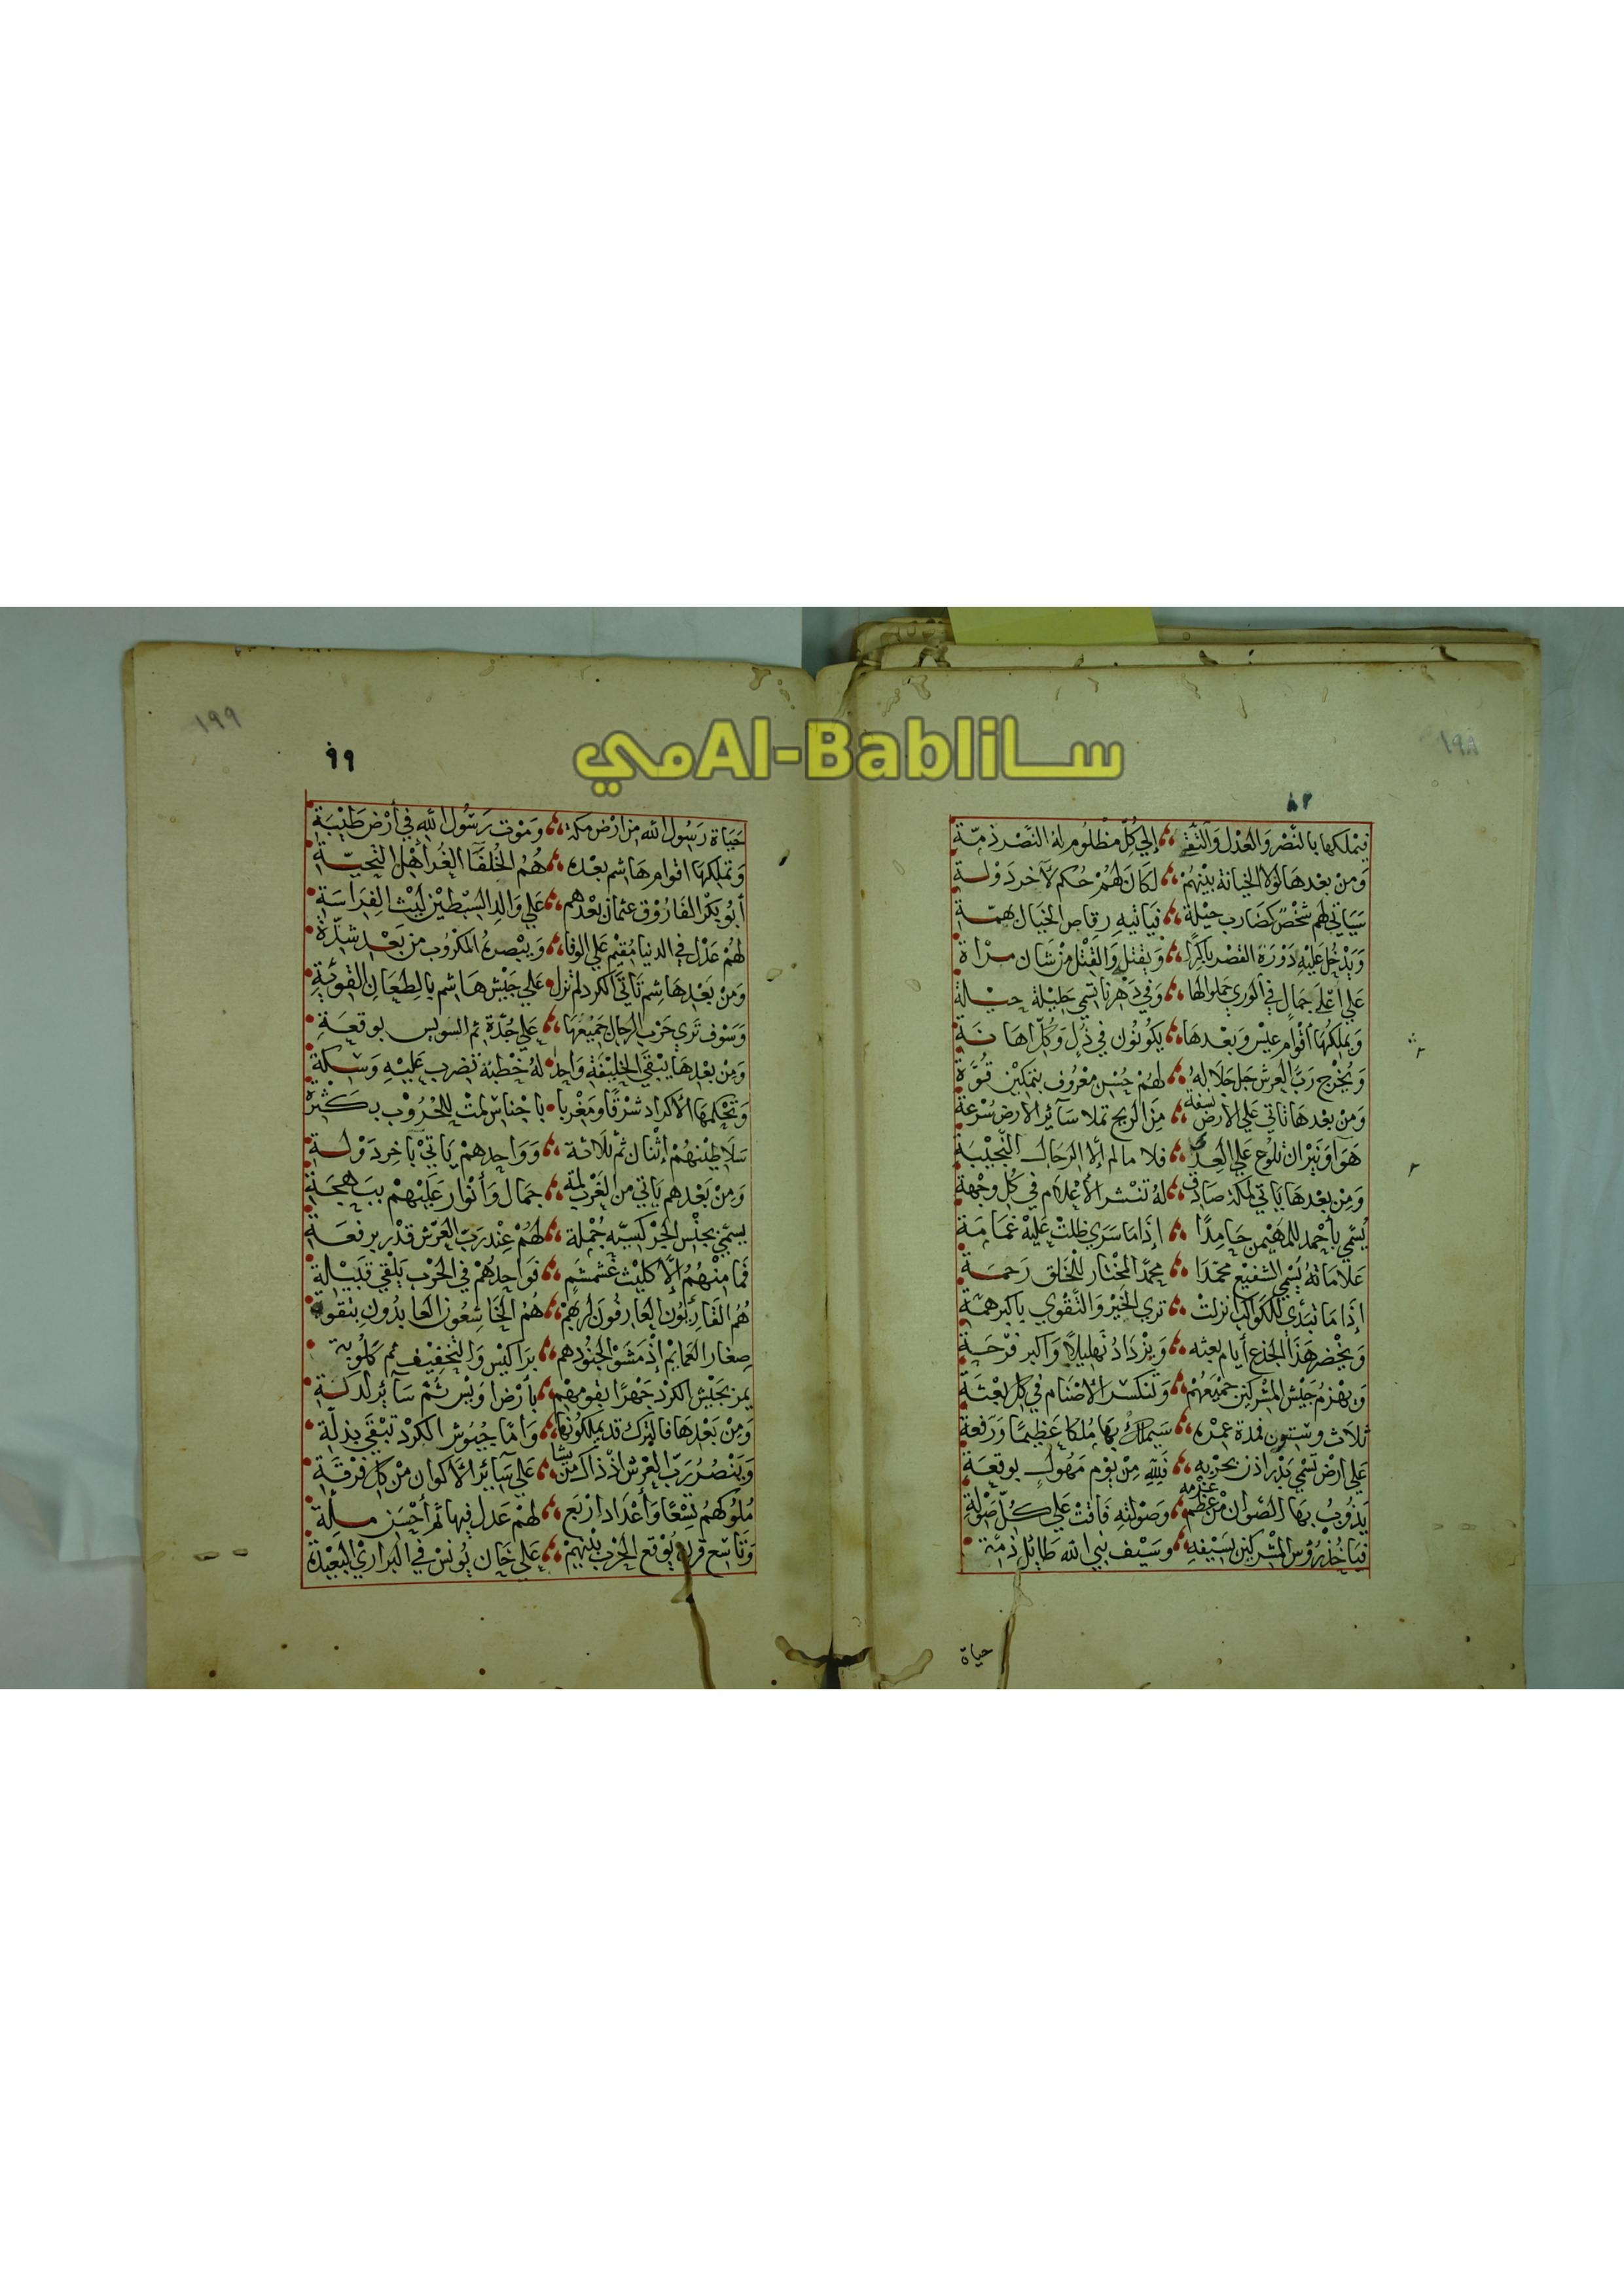 سامي Al-Babli
١٩٨
فيملكها بالنصر والعدل والتقى إلي كل مظلوم له النصر ذمة
ومن بعدها لولا الخيانة بينهم لكان لهم حكم لآخر دولة
سياتي لهم شخص كضارب حيلة فياتيه رقاص الخيال بهمة
ويدخل عليه دورة القصر باكرا ويقتل والقتل من شان مراة
علي اعلي جمال في الوري حملوا لها وفي دهرنا تسمي جليلة حيلة
ويملكها أقوام عيس وبعدها يكونون في ذل وكل اهانة
ويخرج رب العرش جل جلاله لهم جنس معروف بتمكين قوة
ومن بعدها تاتي علي الارض نسفة من الريح تملا سائر الارض سرعة
هوا ونيران تلوح علي العدا فلا سالم إلا الرجال النجيبة
ومن بعدها ياتي لمكة صادق له تنشر الأعلام في كل وجهة
يسمي بأحمد للمهيمن حامدا إذا ما سري ظلت عليه غمامة
علاماته يسمي الشفيع محمدا محمد المختار للخلق رحمة
إذا ما تبدي للكواكب نزلت تري الخير والتقوي باكبر همة
ويخضر هذا الجذع أيام بعثه ويزداد تهليلا واكبر فرحة
ويهزم جيش المشركين جميعهم وتنكسر الاصنام في كل بعثة
ثلاث وستون فمدة عمره سيملك بها ملكا عظيما ورفعة
علي ارض تسمي بدر اذن بحزبه فلله من يوم مهول بوقعة
يذوب بها الصوان من عظم عزمه وصولته فاقت علي كل صولة
فياخذ رؤس المشركين بسيفه وسيف نبي الله طايل ذمة
حياة
١٩٩
٩٩
حياة رسول الله من ارض مكة وموت رسول الله في أرض طيبة
وتملكها اقوام هاشم بعده هم الخلفا الغر أهل التحية
أبو بكر الفاروق عثمان بعدهم علي والد السبطين ليث الفراسة
لهم عدل في الدنيا مقيم علي الوفا وينصره المكروب من بعد شدة
ومن بعد هاشم تاتي الكرد لم تزل علي جيش هاشم بالطعان القوية
وسوف تري حزب الرجال جميعها علي جدة ثم السويس بوقعة
ومن بعدها يبقي الخليفة واحد له خطبة تضرب عليه وسكة
وتحكمها الأكراد شرقا ومغربا باجناس لمت للحروب بكثرة
سلاطينهم إثنان ثم ثلاثة وواحدهم ياتي بآخر دولة
ومن بعدهم ياتي من الغرب لمة جمال وأنوار عليهم ببهجة
يسمي بجنس الجركسيه جملة لهم عند رب العرش قدر برفعة
فما منهم إلا كليث غشمشم فواحدهم في الحرب يلقي قبيلة
هم القاربون العارفون لربهم هم الخاشعون العابدون بتقوة
صغار العمايم إذ مشوا لجنودهم براكيس والتخفيف ثم كلوية
يمز بجيش الكرد جهرا بقومهم بأرض اويس ثم سآئر لدكة
ومن بعدها فالترك قد يملكونها وأما جيوش الكرد تبقي بذلة
وينصر رب العرش اذ ذاك من يشا علي سآئر الأكوان من كل فرقة
ملوكهم تسعا وأعداد اربع لهم عدل فيها ثم أحسن ملة
وتاسع قرن يوقع الحرب بينهم علي خان يونس في البراري البعيدة